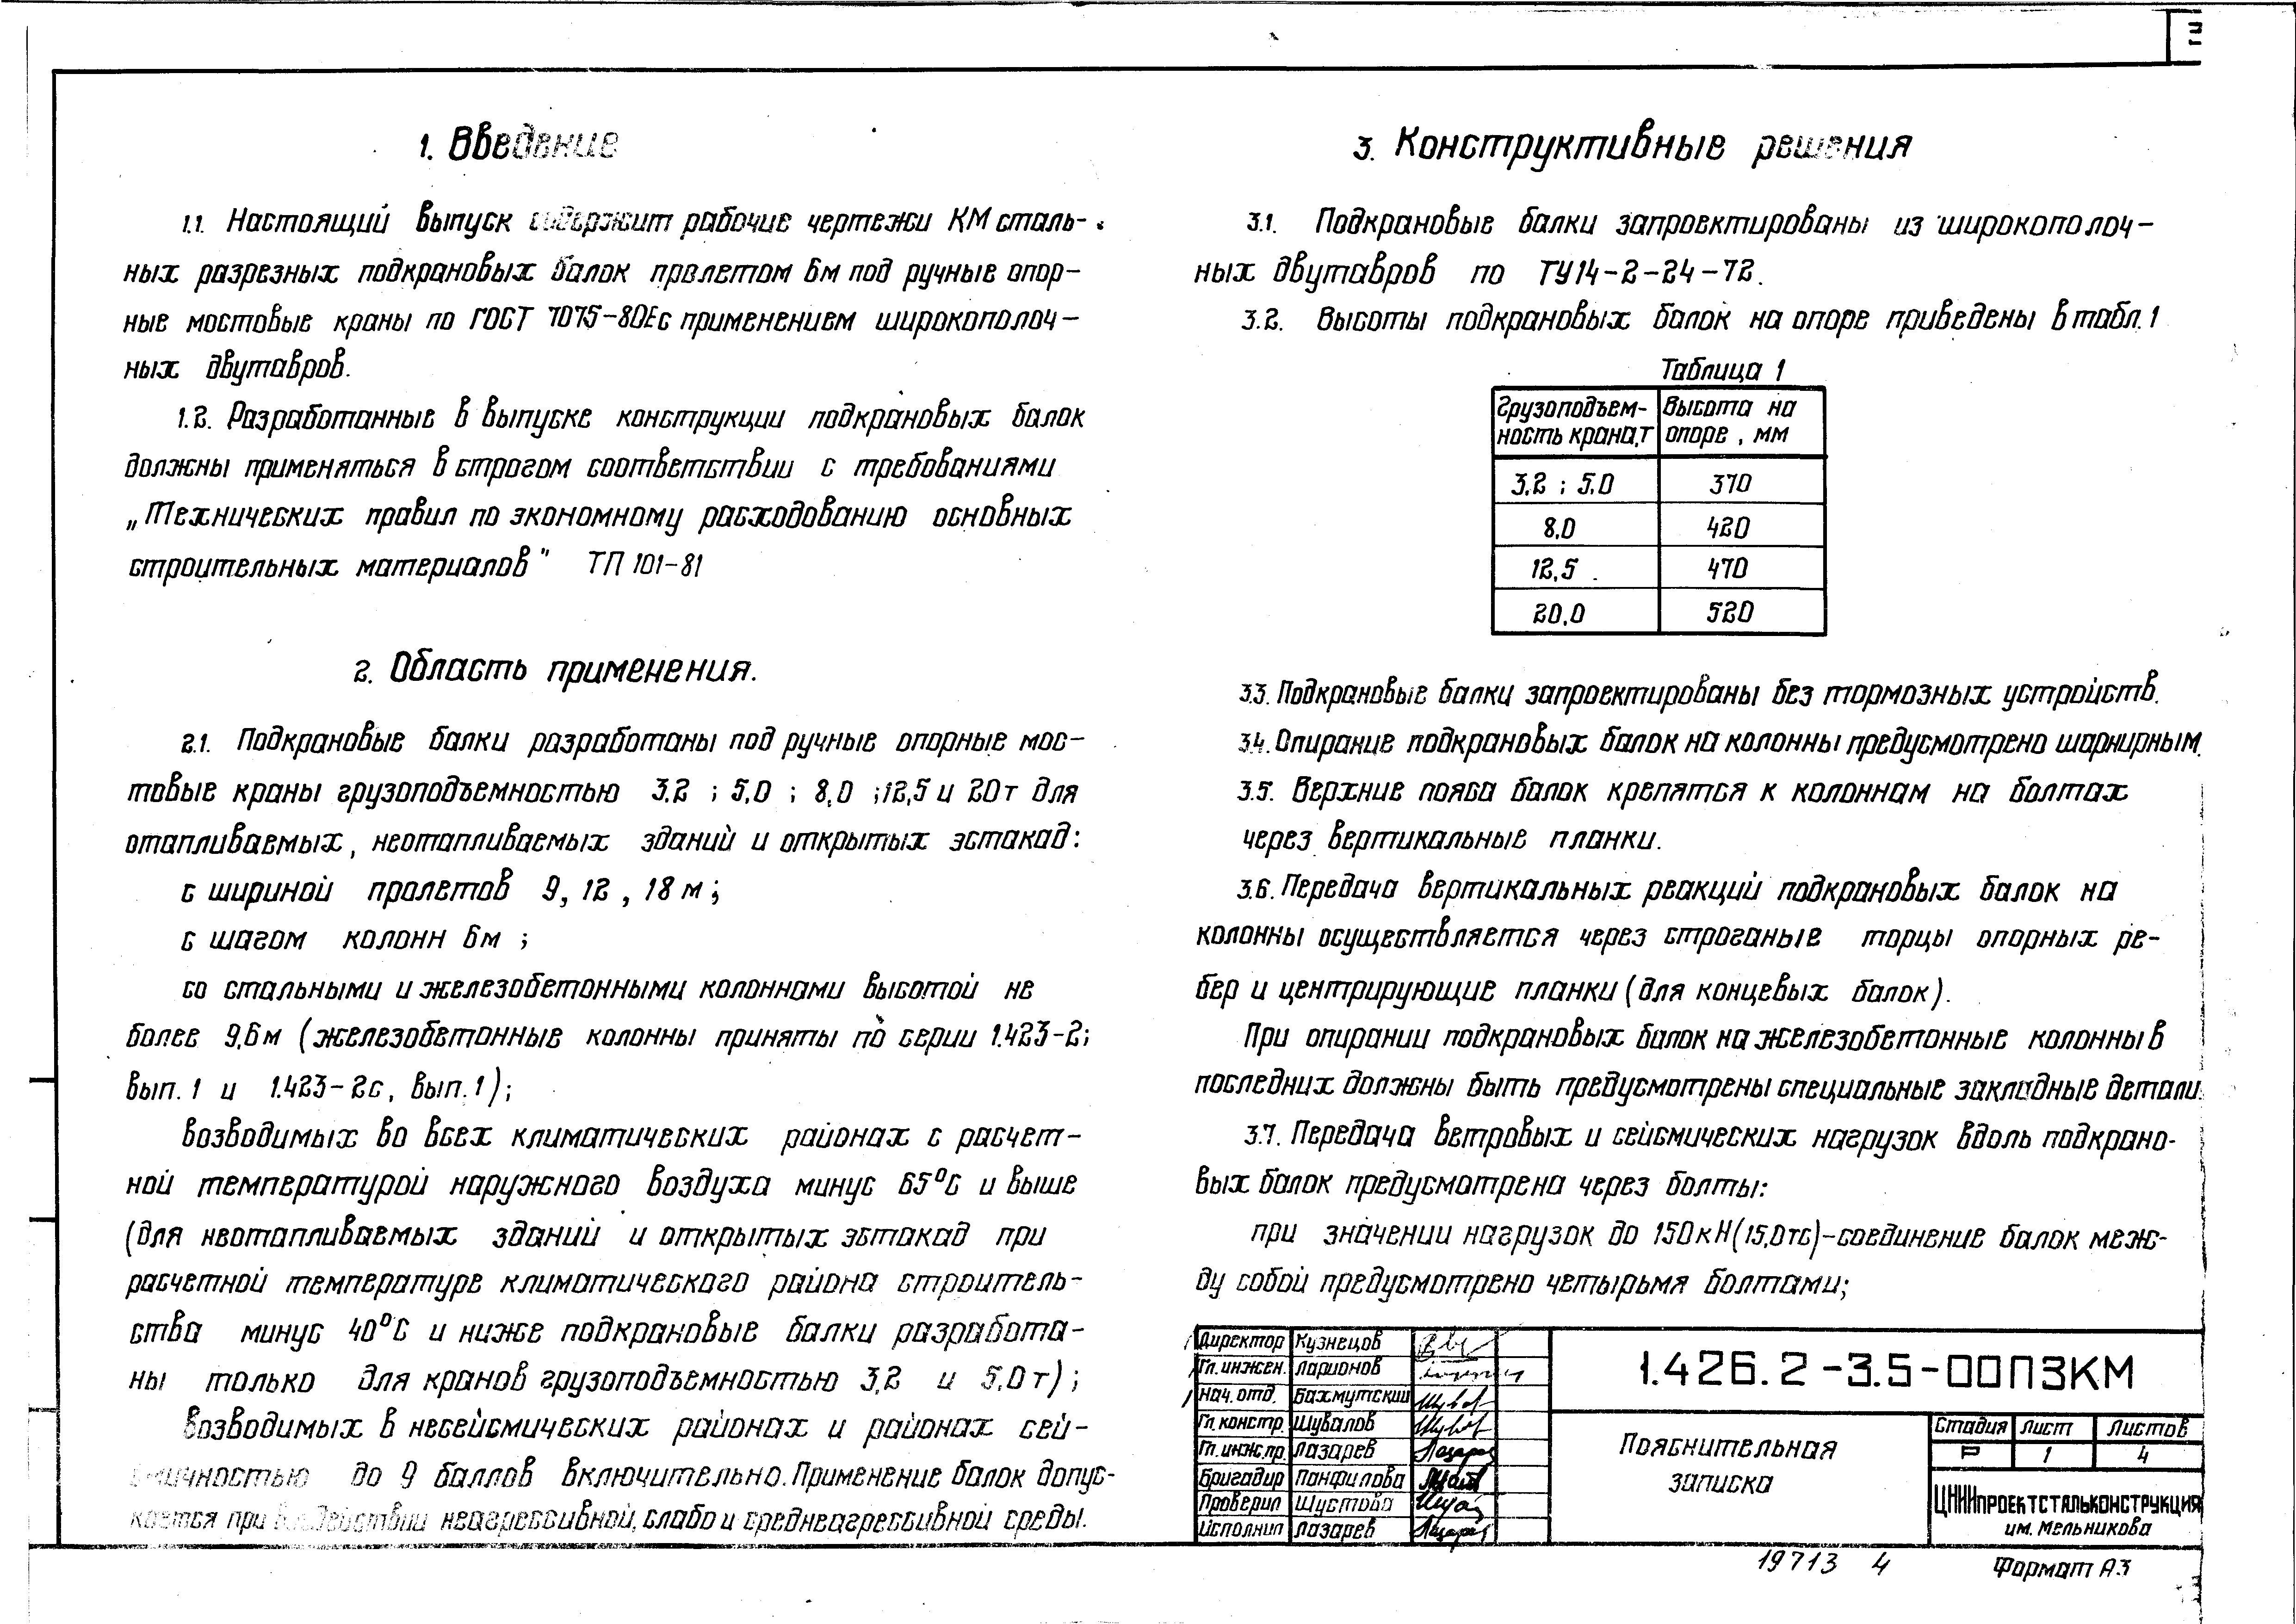 1. Введение
1.1. Настоящий выпуск содержит рабочие чертежи КМ сталь-
ных разрезных подкрановых балок пролетом 6м под ручные опор-
ные мостовые краны по ГОСТ 7075-80Е с применением широкополоч-
ных двутавров.
1.2. Разработанные в выпуске конструкции подкрановых балок
должны применяться в строгом соответствии с требованиями
„Технических правил по экономному расходованию основных
строительных материалов" ТП 101-81
2. Область применения.
2.1. Подкрановые балки разработаны под ручные опорные мос-
товые краны грузоподъемностью 3,2 ; 5,0 ; 8,0 ; 12,5 и 20т для
отапливаемых, неотапливаемых зданий и открытых эстакад:
с шириной пролетов 9, 12, 18 м;
с шагом колонн 6м ;
со стальными и железобетонными колоннами высотой не
более 9,6м (железобетонные колонны приняты по серии 1.423-2;
вып. 1 и 1.423-2с, вып. 1);
возводимых во всех климатических районах с расчет-
ной температурой наружного воздуха минус 65°С и выше
(для неотапливаемых зданий и открытых эстакад при
расчетной температуре климатического района строитель-
ства минус 40°С и ниже подкрановые балки разработа-
ны только для кранов грузоподъемностью 3,2 и 5,0т);
возводимых в несейсмических районах и районах сей-
смичностью до 9 баллов включительно. Применение балок допус-
кается при воздействии неагрессивной, слабо и среднеагрессивной среды.
3. Конструктивные решения
3.1. Подкрановые балки запроектированы из широкополоч-
ных двутавров по ТУ14-2-24-72.
3.2. Высоты подкрановых балок на опоре приведены в табл. 1
Таблица 1
Грузоподъем-
ность крана,т
Высота на
опоре , мм
3,2 ; 5,0 370
8,0 420
12,5 470
20,0 520
3.3. Подкрановые балки запроектированы без тормозных устройств.
3.4. Опирание подкрановых балок на колонны предусмотрено шарнирным.
3.5. Верхние пояса балок крепятся к колоннам на болтах
через вертикальные планки.
3.6. Передача вертикальных реакций подкрановых балок на
колонны осуществляется через строганые торцы опорных ре-
бер и центрирующие планки (для концевых балок).
При опирании подкрановых балок на железобетонные колонны в
последних должны быть предусмотрены специальные закладные детали.
3.7. Передача ветровых и сейсмических нагрузок вдоль подкрано-
вых балок предусмотрена через болты:
при значении нагрузок до 150кН(15,0тс)-соединение балок меж-
ду собой предусмотрено четырьмя болтами;
Директор Кузнецов
Гл. инжен. Ларионов
Нач. отд. Бахмутский
Гл. констр. Шувалов
Гл. инж. пр. Лазарев
Бригадир Панфилова
Проверил Шустова
Исполнил Лазарев
1.426.2-3.5-00ПЗКМ
Пояснительная
записка
Стадия Лист Листов
Р 1 4
ЦНИИПРОЕКТСТАЛЬКОНСТРУКЦИЯ
им. Мельникова
19713 4
Формат А3